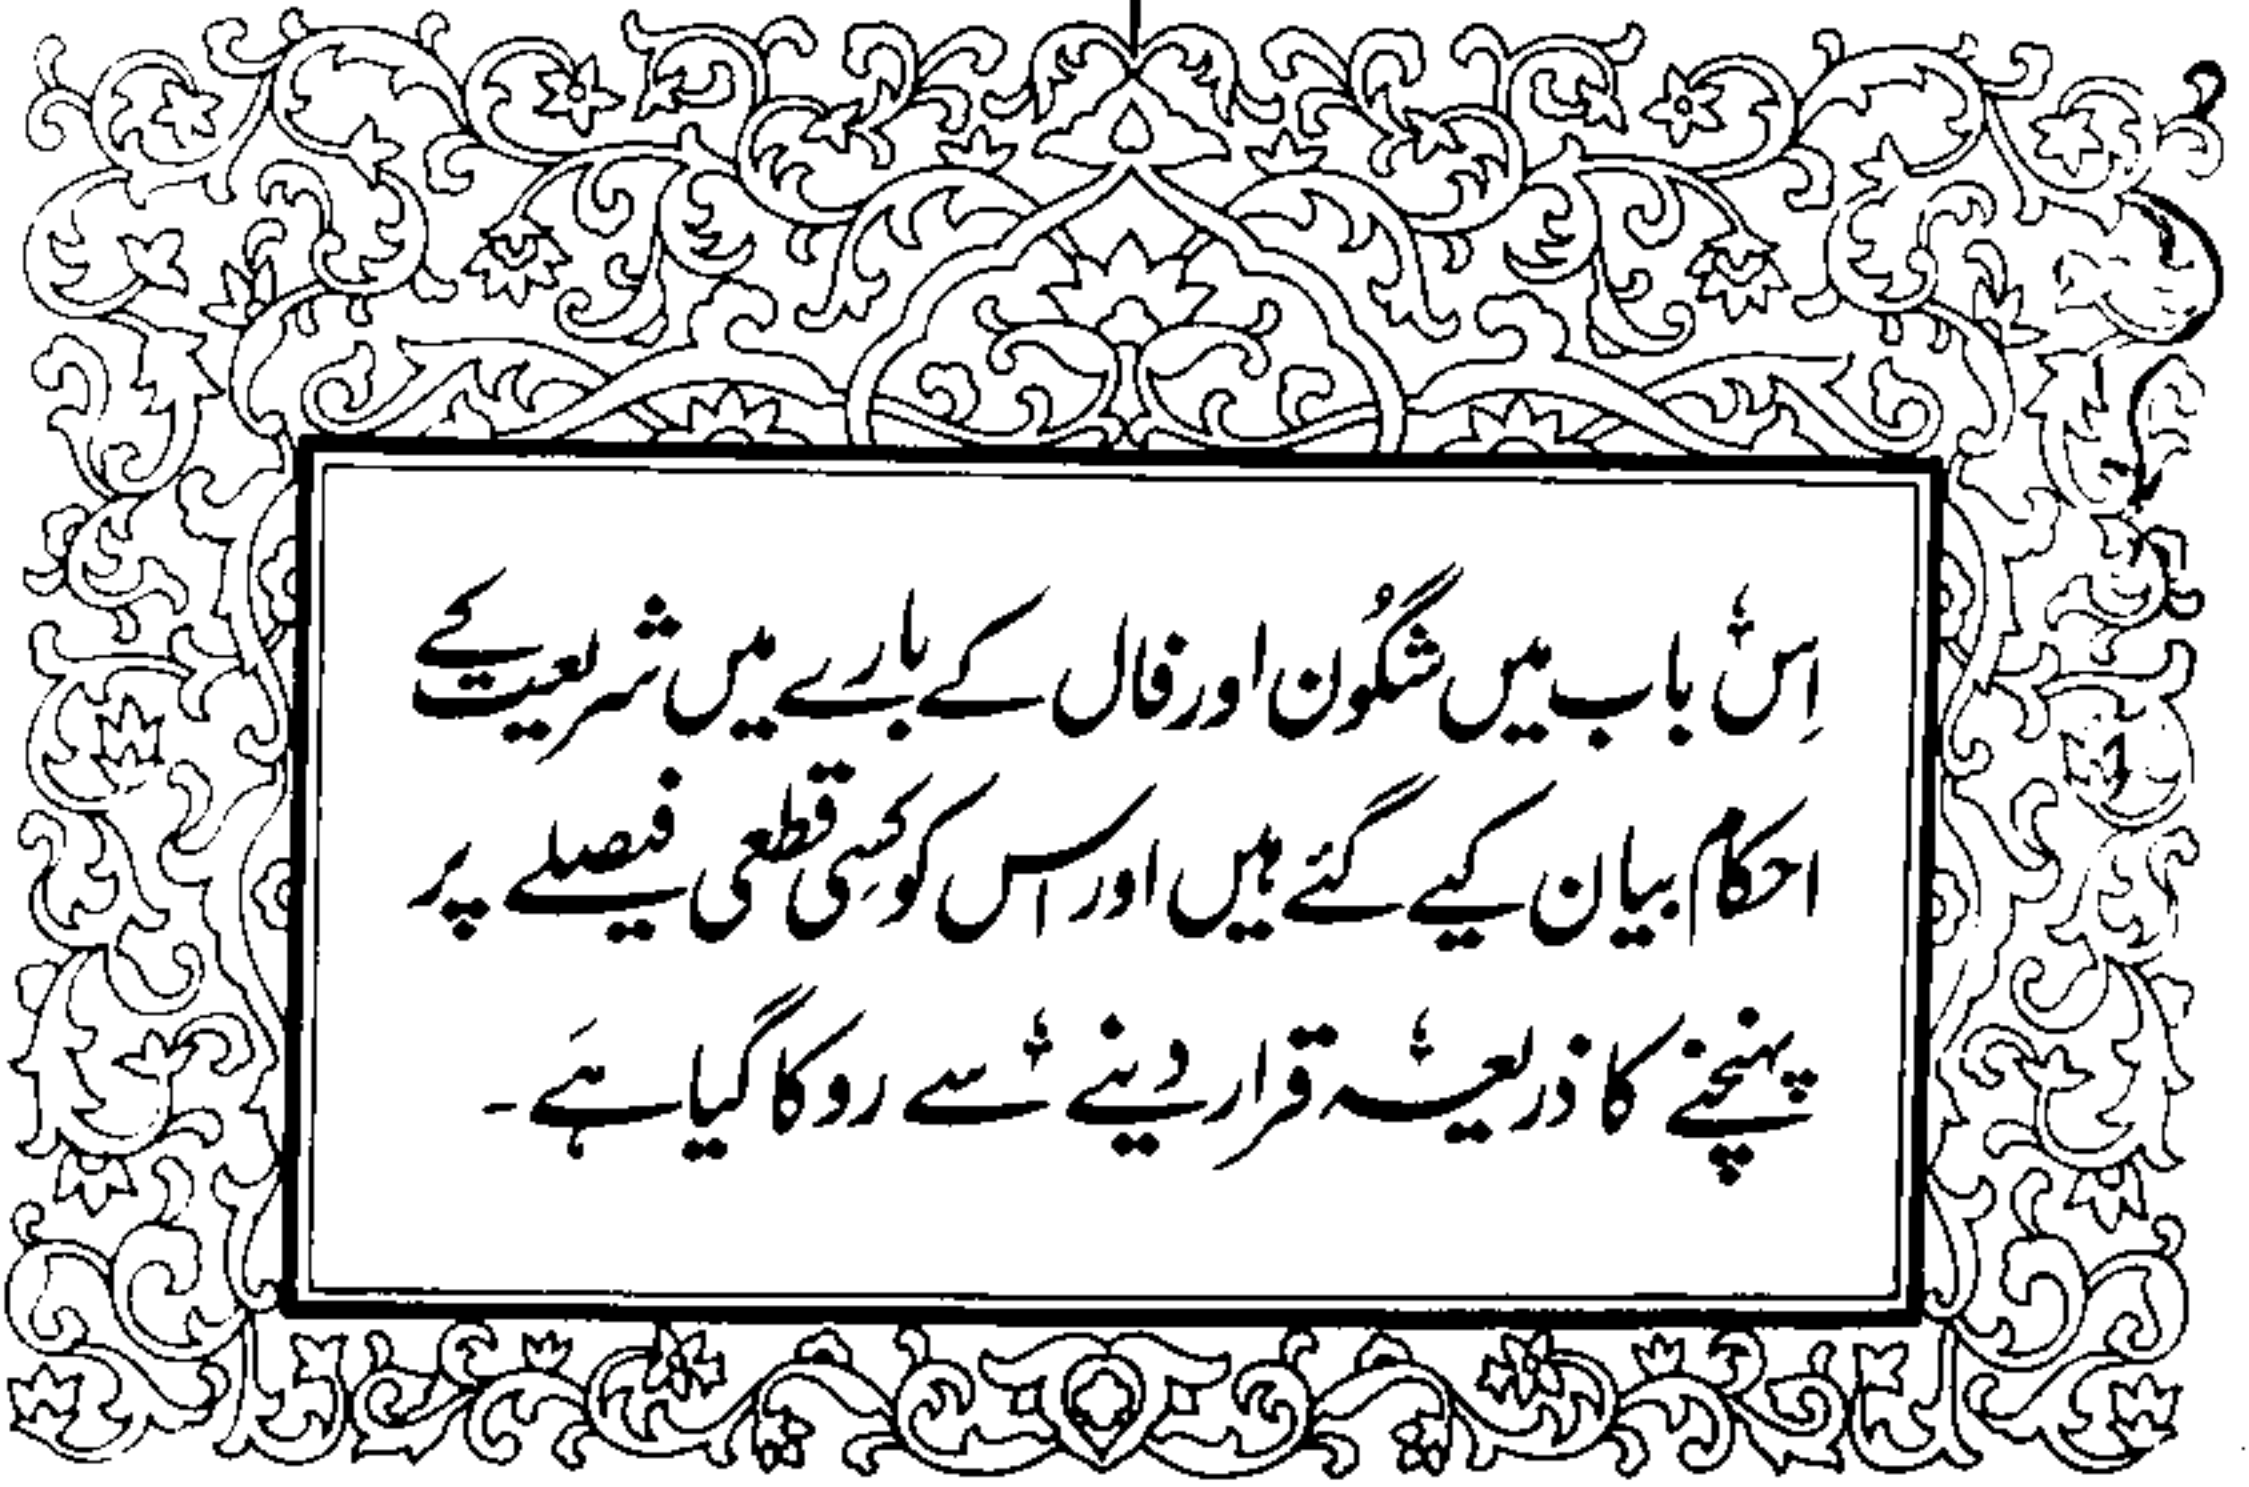 اِس باب میں شگُون اور فال کے بارے میں شریعت کے
احکام بیان کیے گئے ہیں اور اس کو کسِی قطعی فیصلے پر
پہنچنے کا ذریعہ قرار دینے سے روکا گیا ہَے۔